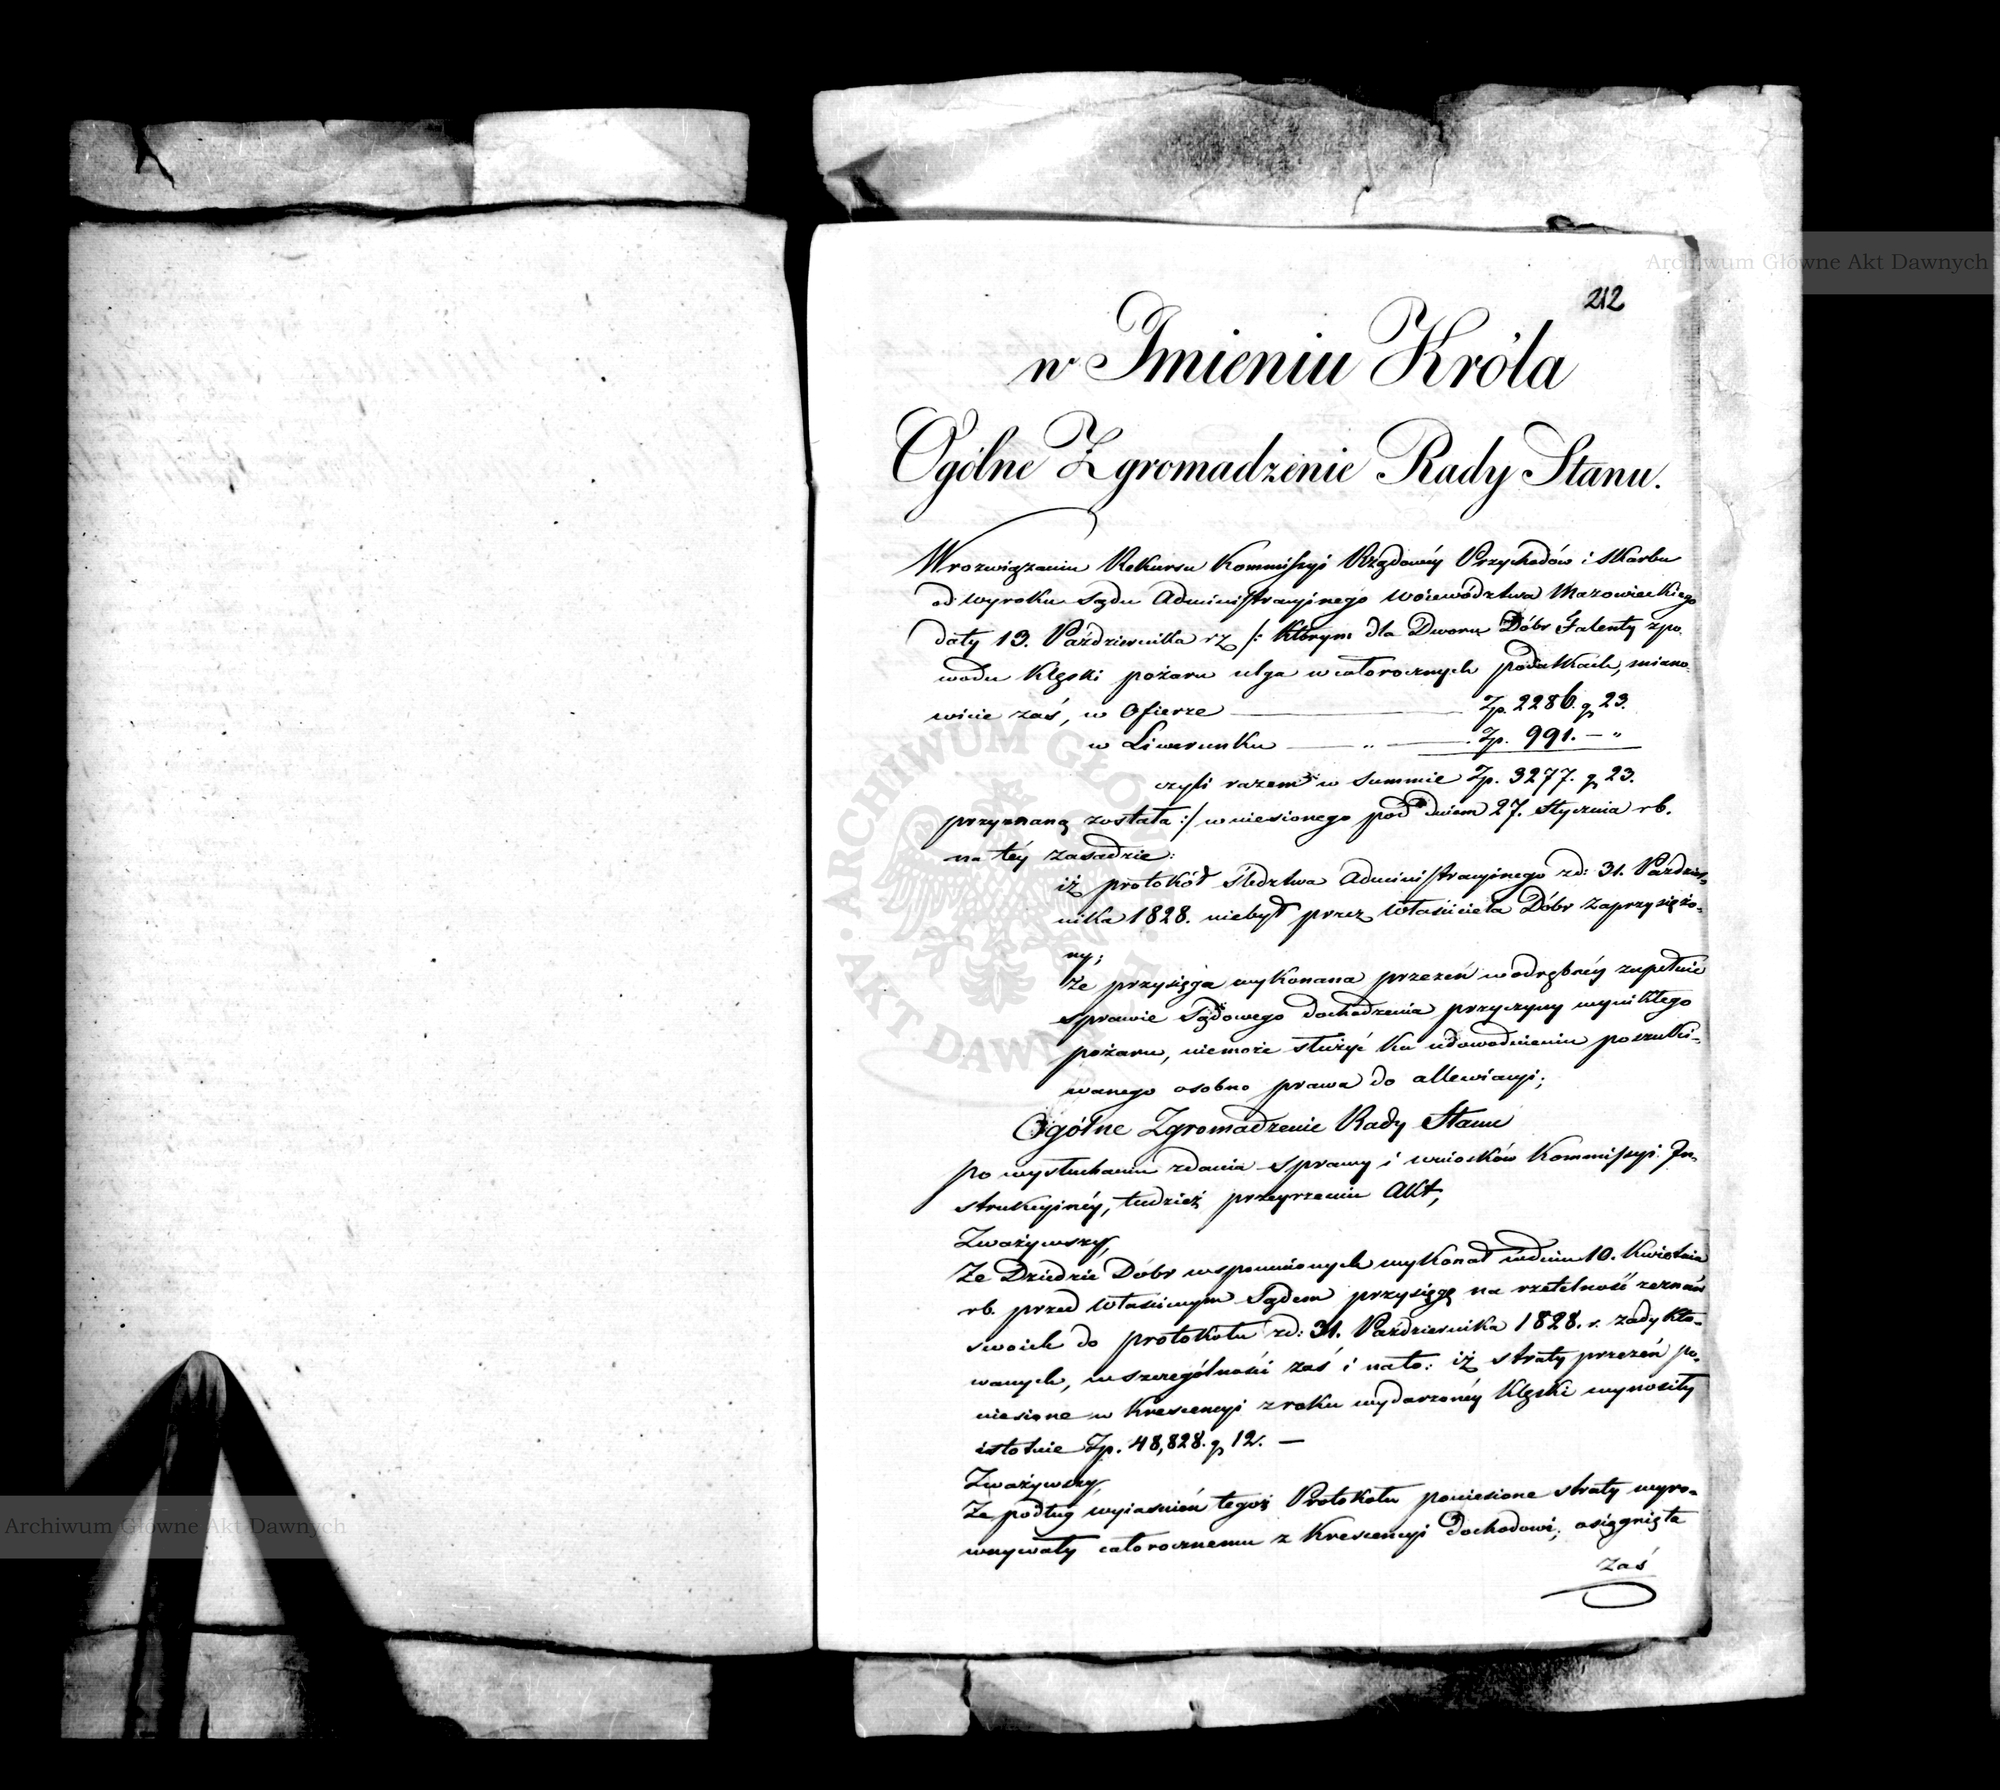 Archiwum Główne Akt Dawnych
212
w Imieniu Króla
Ogólne Zgromadzenie Rady Stanu.
W rozwiązaniu Rekursu Kommissyi Rządowéy Przychodów i Skarbu
od wyroku Sądu Administracyinego Woiewództwa Mazowieckiego
daty 13. Października rz /: którym dla Dworu Dóbr Falenty zpo-
wodu klęski pożaru ulga w całorocznych podatkach, miano-
wicie zaś, w Ofierze Zp. 2286. g 23.
w Liwerunku " Zp. 991. — "
czyli razem w summie Zp. 3277. g 23.
przyznaną została :/ wniesionego pod dniem 27. Stycznia rb.
na téy zasadzie:
iż protokół śledztwa Administracyinego zd: 31. Paździer-
nika 1828. niebył przez Właściciela Dóbr zaprzysiężo-
ny;
że przysięga wykonana przezeń w odrębnéy zupełnie
sprawie Sądowego dochodzenia przyczyny wynikłego
pożaru, niemoże służyć ku udowodnieniu poszuki-
wanego osobno prawa do allewiacyi;
Ogólne Zgromadzenie Rady Stanu
po wysłuchaniu zdania sprawy i wniosków Kommissyi In-
strukcyinéy, tudzież przeyrzeniu Akt,
Zważywszy,
Że Dziedzic Dóbr wspomnionych wykonał w dniu 10. Kwietnia
rb. przed właściwym Sądem przysięgę na rzetelność zeznań
swoich do protokółu zd: 31. Października 1828. r. zadykto-
wanych, w szczególności zaś i na to: iż straty przezeń po-
niesione w krescencyi z roku wydarzonéy klęski wynosiły
istotnie Zp. 48,828. g 12. —
Zważywszy,
Że podług wyiaśnień tegoż Protokółu poniesione straty wyro-
wnywały całorocznemu z krescencyi dochodowi, osiągnięta
zaś
ARCHIWUM GŁÓWNE AKT DAWNYCH
Archiwum Główne Akt Dawnych